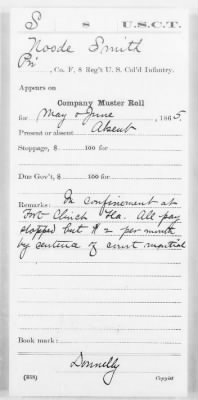 S 8 U.S.C.T.
Noode Smith
Pvt, Co. F, 8 Reg't U. S. Col'd Infantry.
Appears on
Company Muster Roll
for May & June, 1865.
Present or absent Absent
Stoppage, $ 100 for
Due Gov't, $ 100 for
Remarks: In confinement at
Fort Clinch Fla. All pay
stopped but $ 2 per month
by sentence of court martial
Book mark:
Donnelly
(858) Copyist